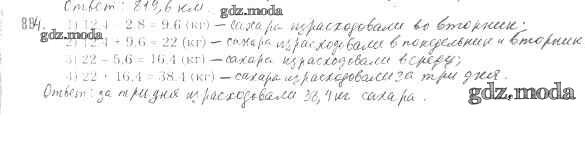 Ответ: 219,6 км.
gdz.moda
884. 1) 12,4 - 2,8 = 9,6 (кг) – сахара израсходовали во вторник;
gdz.moda
2) 12,4 + 9,6 = 22 (кг) – сахара израсходовали в понедельник и вторник
3) 22 - 5,6 = 16,4 (кг) – сахара израсходовали в среду;
4) 22 + 16,4 = 38,4 (кг) – сахара израсходовали за три дня.
Ответ: за три дня израсходовали 38,4 кг сахара.
gdz.moda